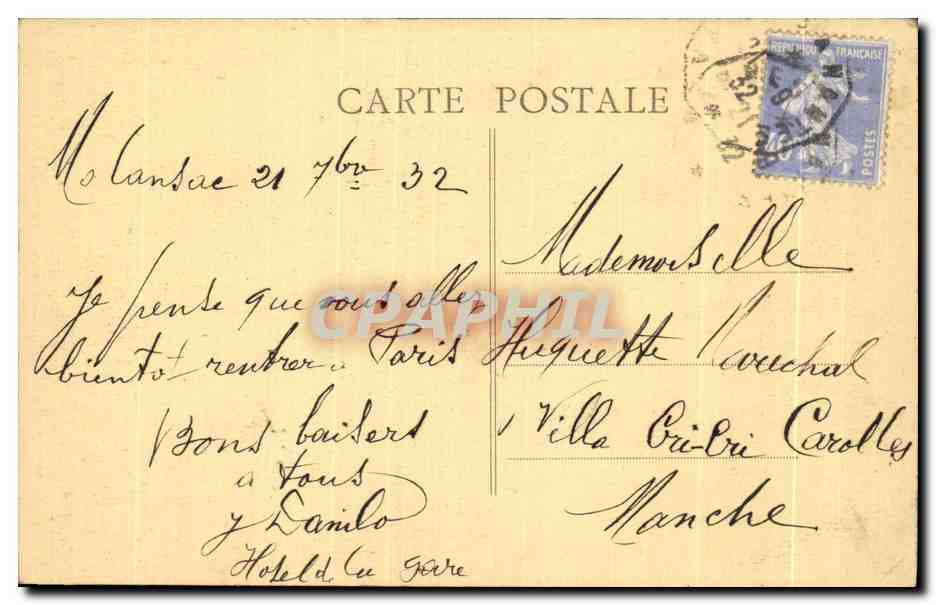 CARTE POSTALE
REPUBLIQUE FRANÇAISE
POSTES
Molansac 21 7bre 32
Je pense que vous allez
bientot rentrer a Paris
Bons baisers
a tous
Y Danilo
Hotel de la gare
Mademoiselle
Huguette Marechal
Villa Cri-Cri Carolles
Manche
CPAPHIL